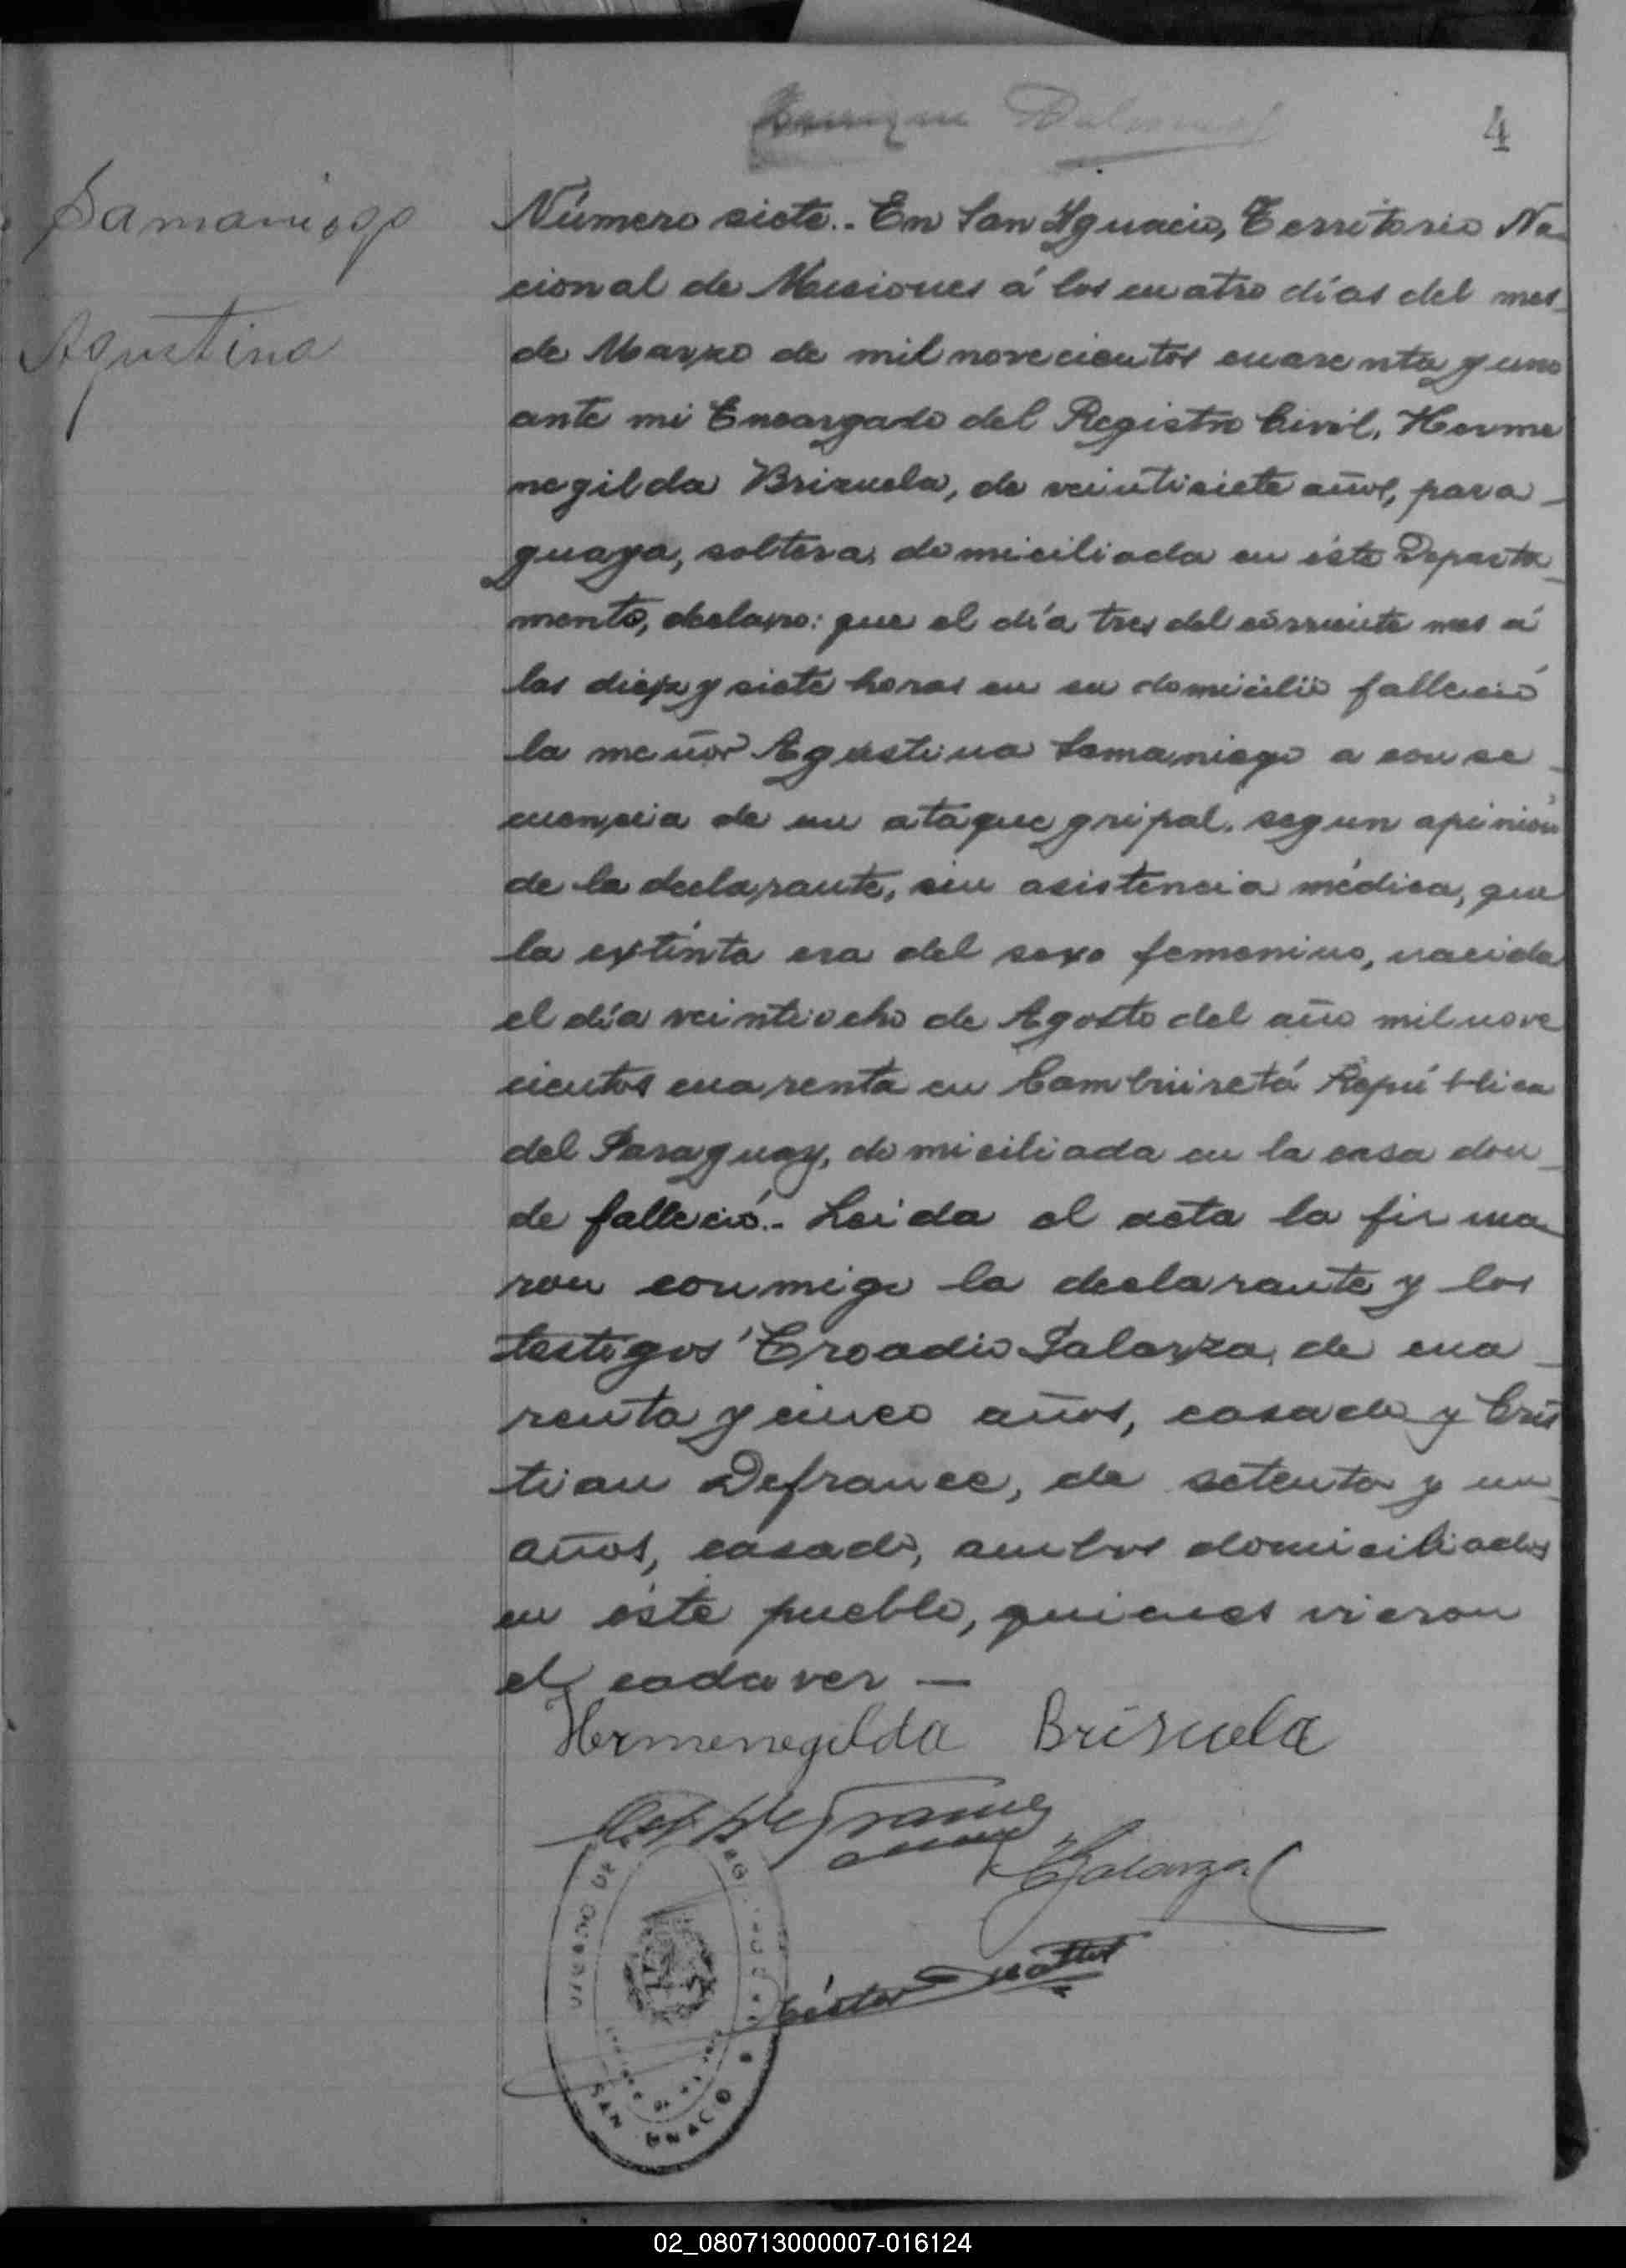 4
Samaniego
Agustina
Número siete.. En San Ygnacio, Territorio Na-
cional de Misiones á los cuatro días del mes
de Marzo de mil novecientos cuarenta y uno
ante mi Encargado del Registro Civil, Herme
negilda Brizuela, de veintisiete años, para-
guaya, soltera, domiciliada en éste Departa-
mento, declaro: que el día tres del corriente mes á
las diez y siete horas en su domicilio falleció
la menor Agustina Samaniego a conse-
cuencia de un ataque gripal, segun opinión
de la declarante, sin asistencia médica, que
la extinta era del sexo femenino, nacida
el día veintiocho de Agosto del año mil nove
cientos cuarenta en Cambyretá República
del Paraguay, domiciliada en la casa don-
de falleció.- Leida el acta la firma
ron conmigo la declarante y los
testigos Eroadio Galarza, de cua-
renta y cinco años, casado y Cris
tian Defrance, de setenta y un
años, casado, ambos domiciliados
en éste pueblo, quienes vieron
el cadaver —
Hermenegilda Brisuela
Defrance
EGalarza
SAN IGNACIO
02_080713000007-016124